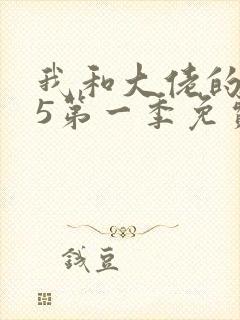 我和大佬的
5第一季免
钱豆